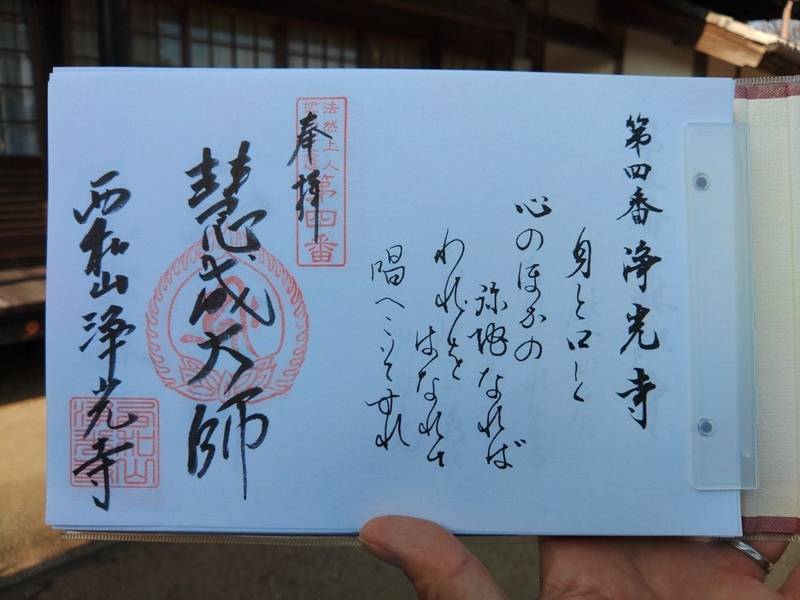 第四番 浄光寺
身と口と
心のほかの
弥陀なれば
われを
はなれて
唱へこそすれ
奉拝
法然上人
第四番
慧成大師
西松山 浄光寺